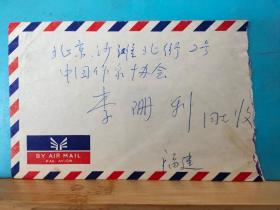 北京沙滩北街2号
中国作家协会
李珊利 同志收
福建
BY AIR MAIL
PAR AVION